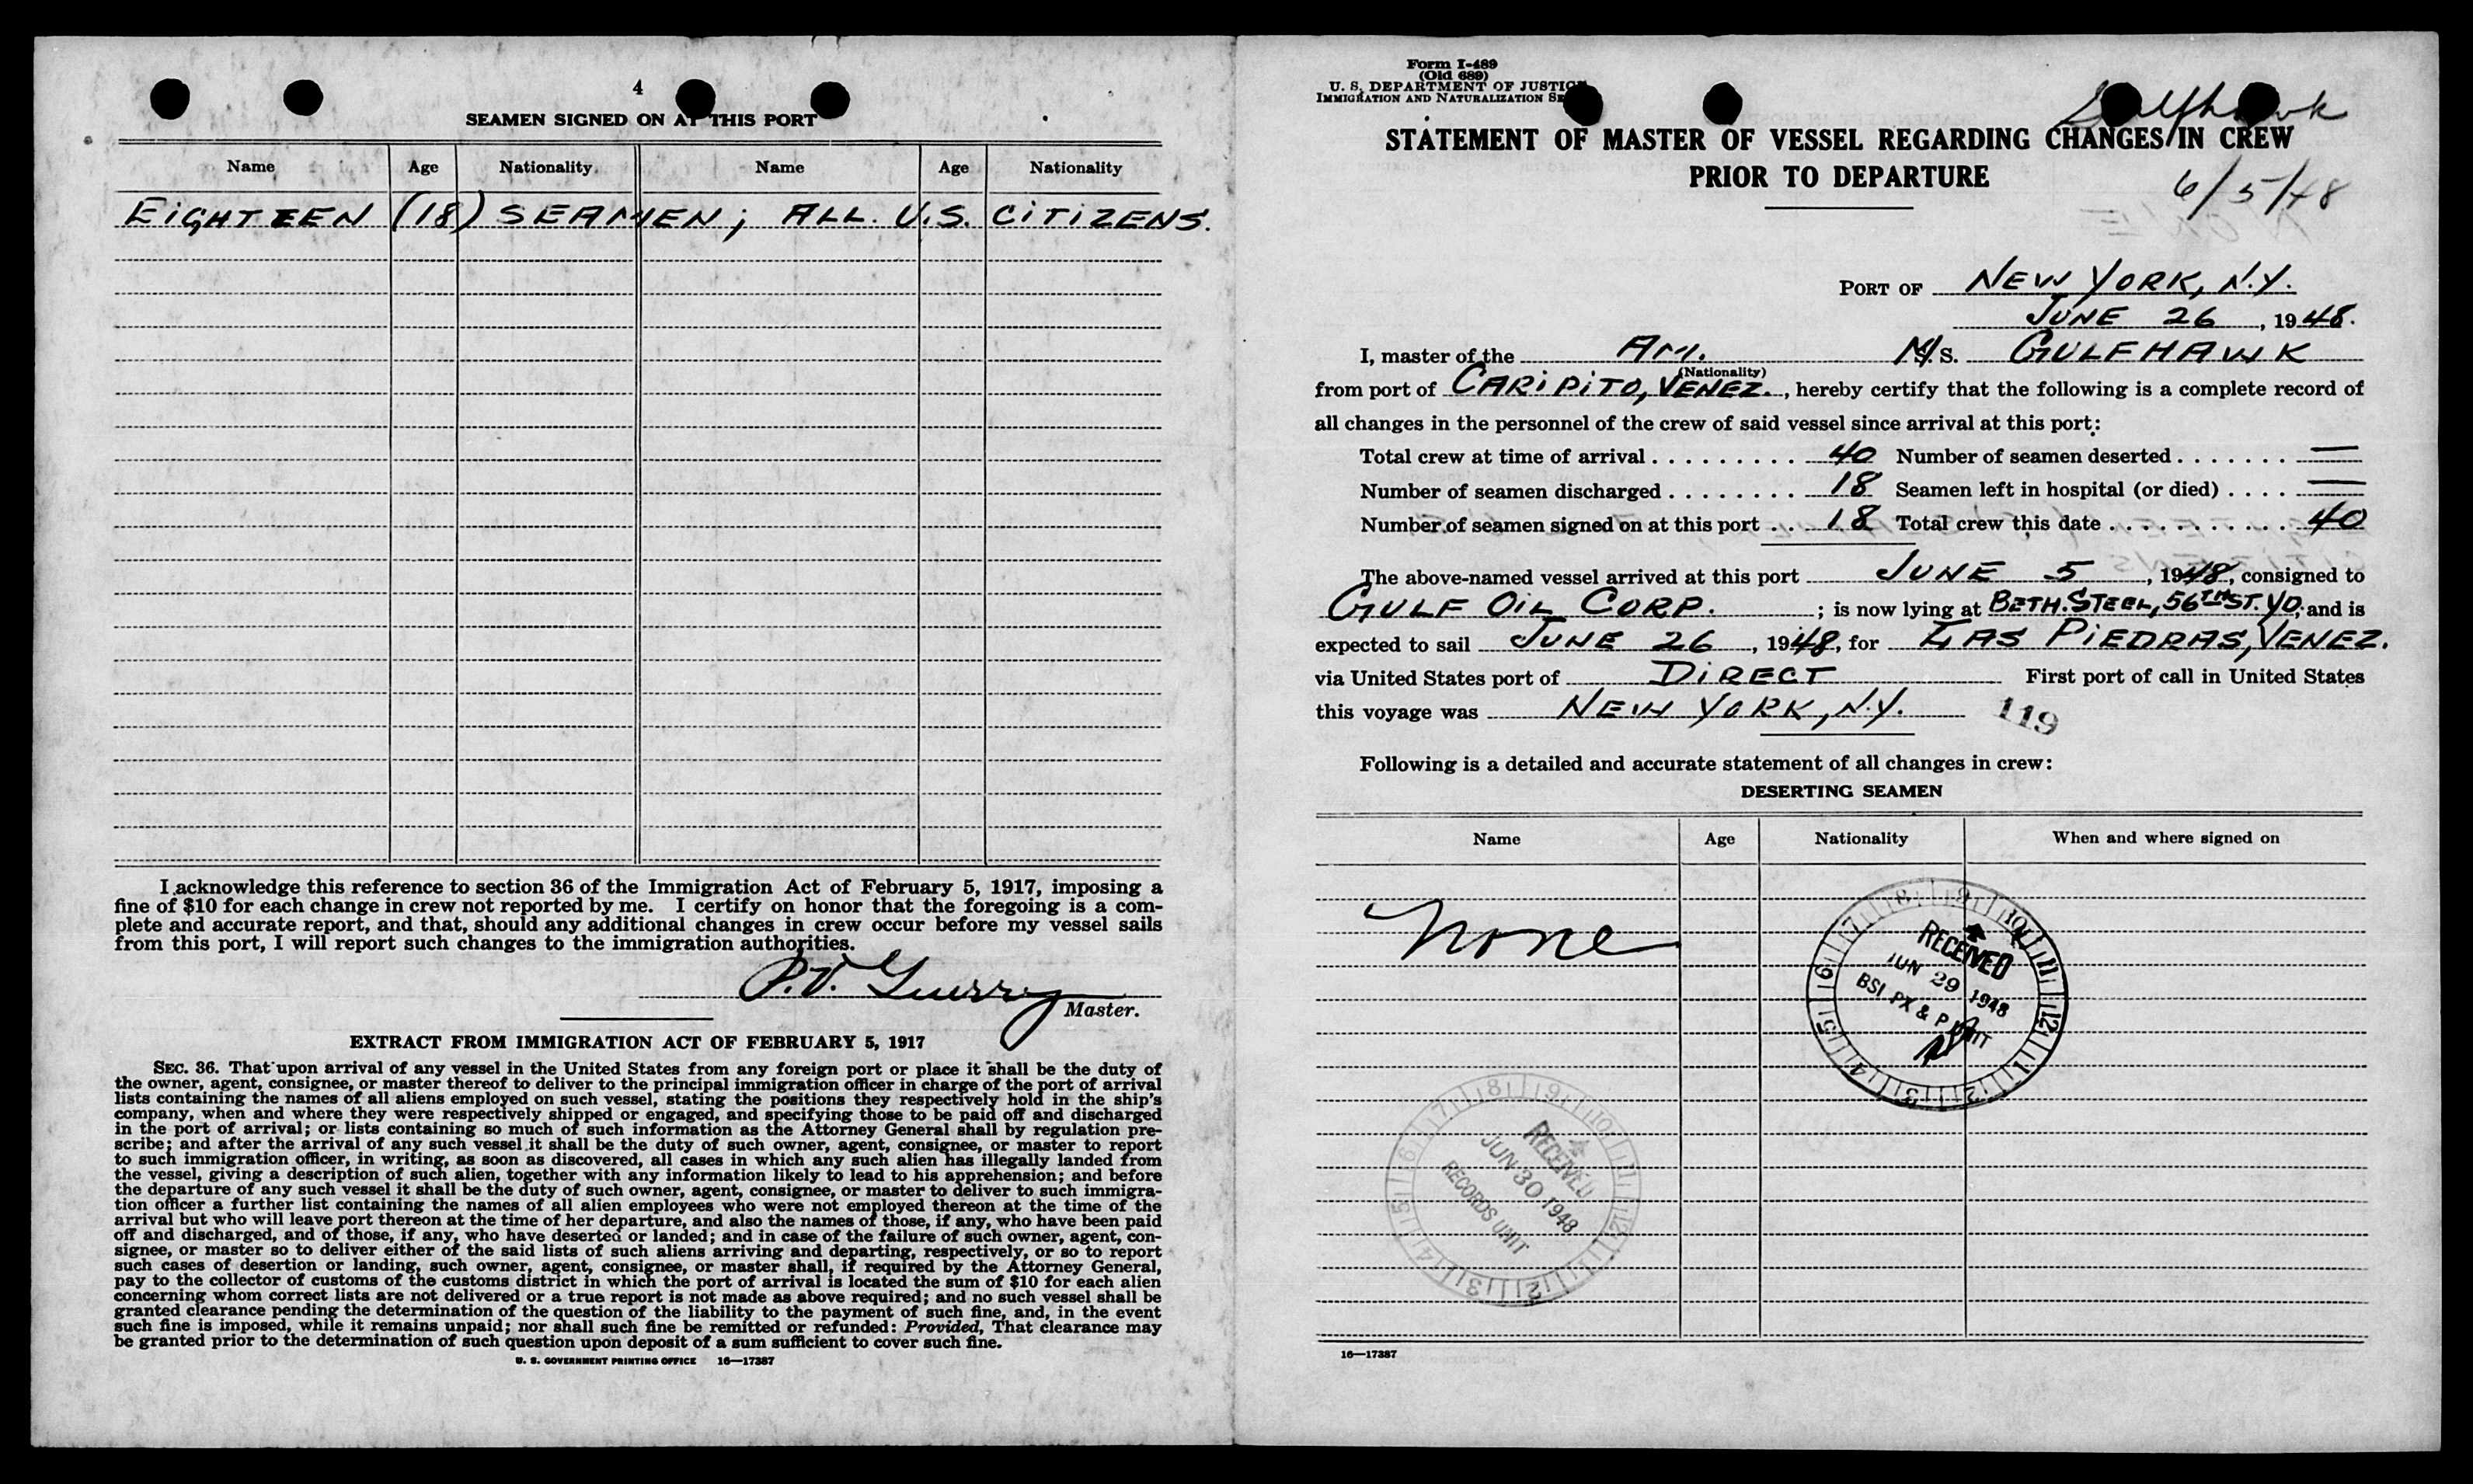 4
SEAMEN SIGNED ON AT THIS PORT
Name Age Nationality Name Age Nationality
EIGHTEEN (18) SEAMEN; ALL U.S. CITIZENS.
I acknowledge this reference to section 36 of the Immigration Act of February 5, 1917, imposing a
fine of $10 for each change in crew not reported by me. I certify on honor that the foregoing is a com-
plete and accurate report, and that, should any additional changes in crew occur before my vessel sails
from this port, I will report such changes to the immigration authorities.
P.V. Guerry
Master.
EXTRACT FROM IMMIGRATION ACT OF FEBRUARY 5, 1917
SEC. 36. That upon arrival of any vessel in the United States from any foreign port or place it shall be the duty of
the owner, agent, consignee, or master thereof to deliver to the principal immigration officer in charge of the port of arrival
lists containing the names of all aliens employed on such vessel, stating the positions they respectively hold in the ship's
company, when and where they were respectively shipped or engaged, and specifying those to be paid off and discharged
in the port of arrival; or lists containing so much of such information as the Attorney General shall by regulation pre-
scribe; and after the arrival of any such vessel it shall be the duty of such owner, agent, consignee, or master to report
to such immigration officer, in writing, as soon as discovered, all cases in which any such alien has illegally landed from
the vessel, giving a description of such alien, together with any information likely to lead to his apprehension; and before
the departure of any such vessel it shall be the duty of such owner, agent, consignee, or master to deliver to such immigra-
tion officer a further list containing the names of all alien employees who were not employed thereon at the time of the
arrival but who will leave port thereon at the time of her departure, and also the names of those, if any, who have been paid
off and discharged, and of those, if any, who have deserted or landed; and in case of the failure of such owner, agent, con-
signee, or master so to deliver either of the said lists of such aliens arriving and departing, respectively, or so to report
such cases of desertion or landing, such owner, agent, consignee, or master shall, if required by the Attorney General,
pay to the collector of customs of the customs district in which the port of arrival is located the sum of $10 for each alien
concerning whom correct lists are not delivered or a true report is not made as above required; and no such vessel shall be
granted clearance pending the determination of the question of the liability to the payment of such fine, and, in the event
such fine is imposed, while it remains unpaid; nor shall such fine be remitted or refunded: Provided, That clearance may
be granted prior to the determination of such question upon deposit of a sum sufficient to cover such fine.
U. S. GOVERNMENT PRINTING OFFICE 16—17387
Form I-489
(Old 689)
U. S. DEPARTMENT OF JUSTICE
IMMIGRATION AND NATURALIZATION SE
Gulfhawk
STATEMENT OF MASTER OF VESSEL REGARDING CHANGES IN CREW
PRIOR TO DEPARTURE
6/5/48
PORT OF NEW YORK, N.Y.
JUNE 26, 1948.
I, master of the AM. M/S. GULFHAWK
(Nationality)
from port of CARIPITO, VENEZ., hereby certify that the following is a complete record of
all changes in the personnel of the crew of said vessel since arrival at this port:
Total crew at time of arrival . . . . . . . . . 40 Number of seamen deserted . . . . . . . —
Number of seamen discharged . . . . . . . . 18 Seamen left in hospital (or died) . . . . —
Number of seamen signed on at this port . . 18 Total crew this date . . . . . . . . . . . 40
The above-named vessel arrived at this port JUNE 5, 1948, consigned to
GULF OIL CORP. ; is now lying at BETH. STEEL, 56TH ST. YD, and is
expected to sail JUNE 26, 1948, for LAS PIEDRAS, VENEZ.
via United States port of DIRECT First port of call in United States
this voyage was NEW YORK, N.Y. 119
Following is a detailed and accurate statement of all changes in crew:
DESERTING SEAMEN
Name Age Nationality When and where signed on
none
RECEIVED
JUN 29 1948
BSI PX & P UNIT
RECEIVED
JUN 30 1948
RECORDS UNIT
16—17387